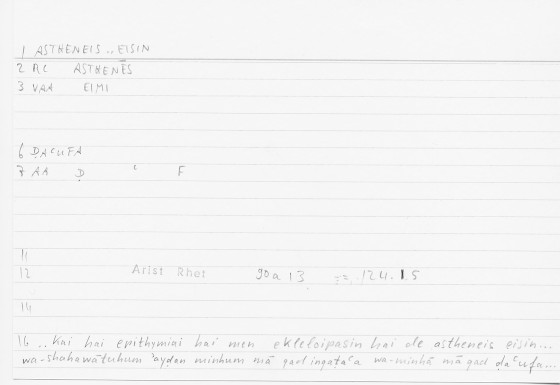 1 ASTHENEIS .. EISIN
2 AC ASTHENĒS
3 VAA EIMI
6 ḌAʿUFA
7 AA Ḍ ʿ F
11
12 Arist Rhet 90a13 = 124.15
14
16 .. Kai hai epithymiai hai men ekleloipasin hai de astheneis eisin...
wa-shahawātuhum ʾayḍan minhum mā qad inqaṭaʿa wa-minhā mā qad ḍaʿufa...